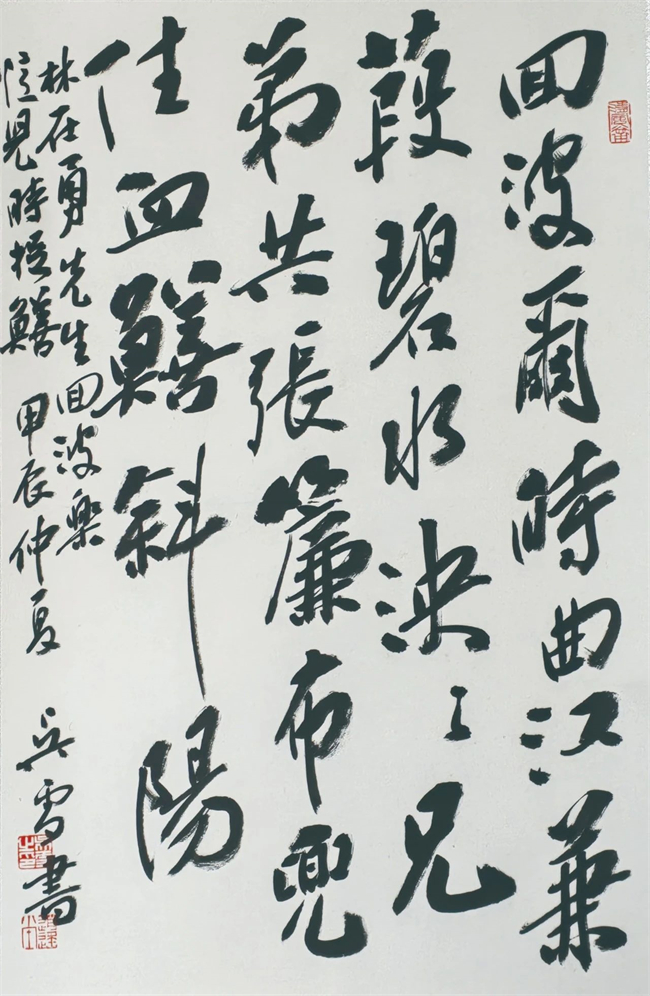 回波爾時曲江蒹
葭碧水泱〻兄
弟共張簾布兜
住血鱔斜陽
林在勇先生回波樂
憶兒時捉鱔 甲辰仲夏 吳雪書